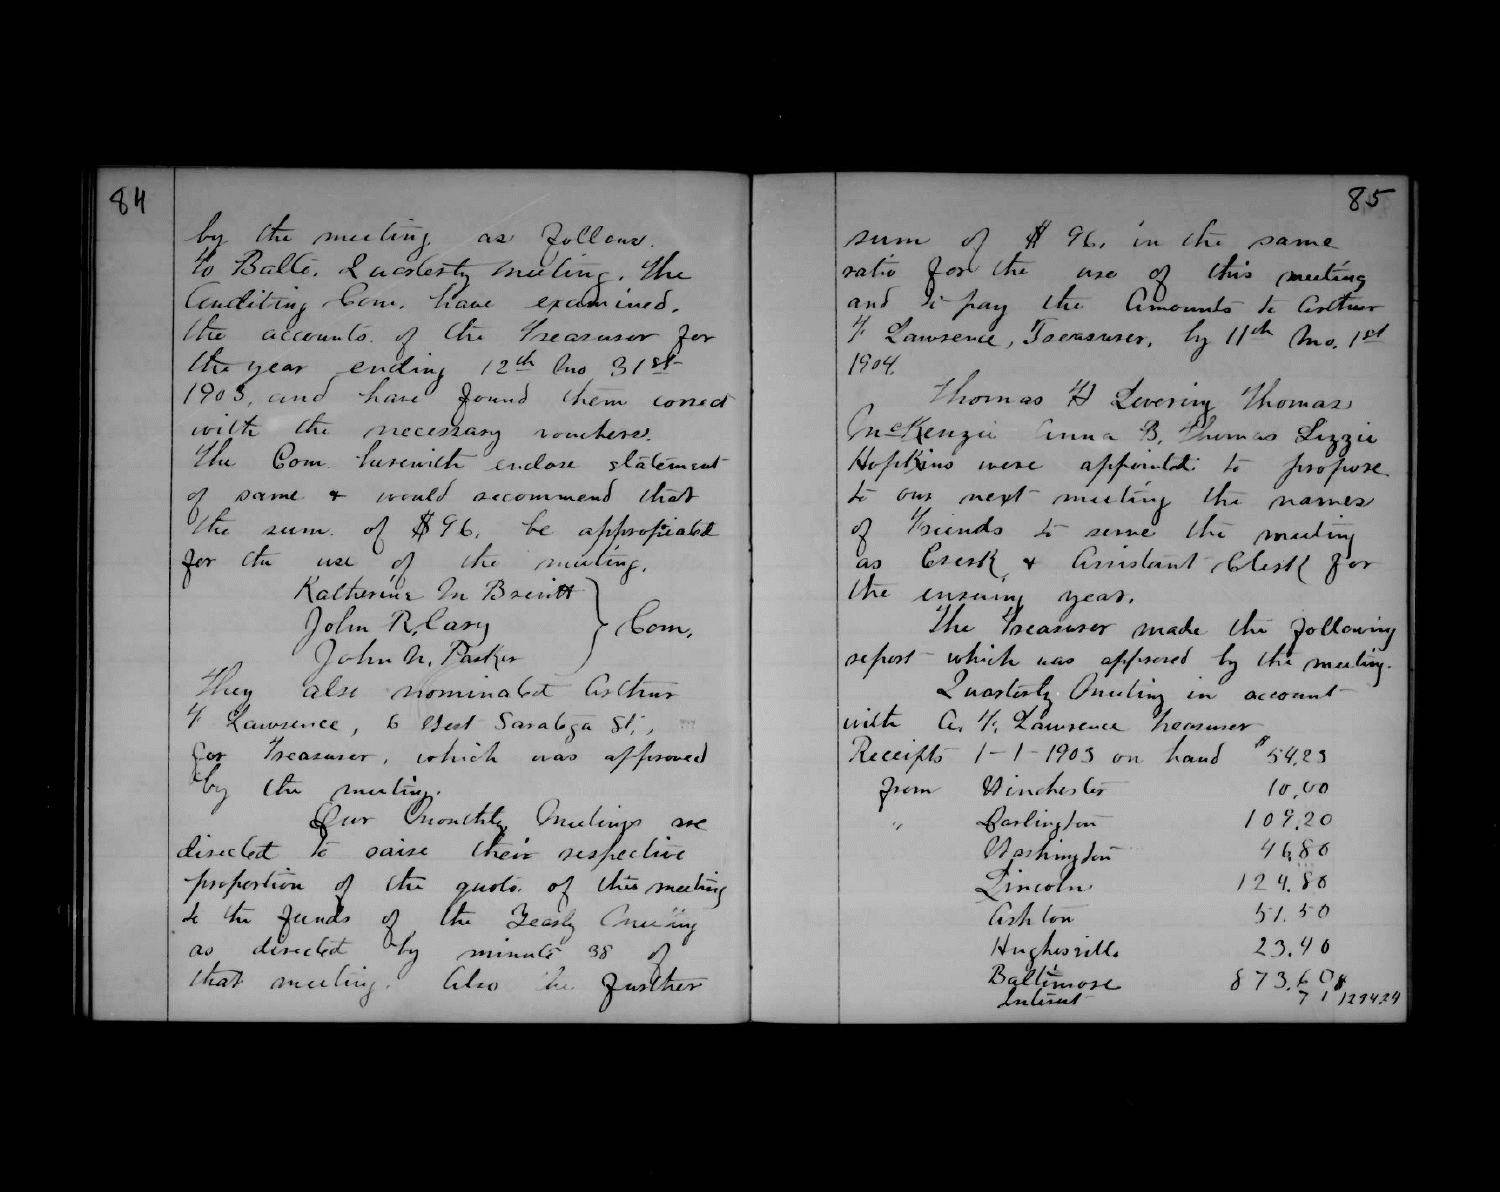 84
by the meeting as follows.
To Balto. Quarterly Meeting. The
Auditing Com. have examined.
the accounts of the Treasurer for
the year ending 12th Mo 31st
1903, and have found them correct
with the necessary vouchers.
The Com. herewith enclose statement
of same & would recommend that
the sum of $96. be appropiated
for the use of the meeting.
Katherine M Brevitt
John R. Cary
John N. Parker
Com.
They also nominated Arthur
F Lawrence, 6 West Saratoga St.,
for Treasurer, which was approved
by the meeting.
Our Monthly Meetings are
directed to raise their respective
proportion of the quota of this meeting
to the funds of the Yearly Meeting
as directed by minute 38 of
that meeting. Also the further
85
sum of $96. in the same
ratio for the use of this meeting
and to pay the Amounts to Arthur
F Lawrence, Treasurer, by 11th Mo. 1st
1904.
Thomas H Levering Thomas
McKenzie Anna B. Thomas Lizzie
Hopkins were appointed to propose
to our next meeting the names
of Friends to serve the meeting
as Clerk & Assistant Clerk for
the ensuing year.
The Treasurer made the following
report which was approved by the meeting.
Quarterly Meeting in account
with A. F. Lawrence Treasurer
Receipts 1-1-1903 on hand $54.23
from Winchester 10.00
" Darlington 109.20
Washington 46.80
Lincoln 124.80
Ashton 51.50
Hughesville 23.40
Baltimore 873.60
Interest 71 $1294.24